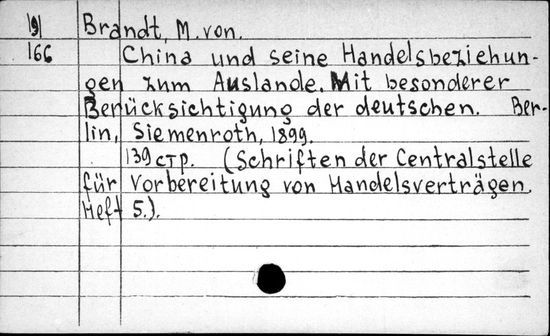 Brandt, M. von.
166 China und seine Handelsbeziehun-
gen zum Auslande. Mit besonderer
Berücksichtigung der deutschen. Ber-
lin, Siemenroth, 1899.
139 стр. (Schriften der Centralstelle
für Vorbereitung von Handelsverträgen.
Heft 5.).